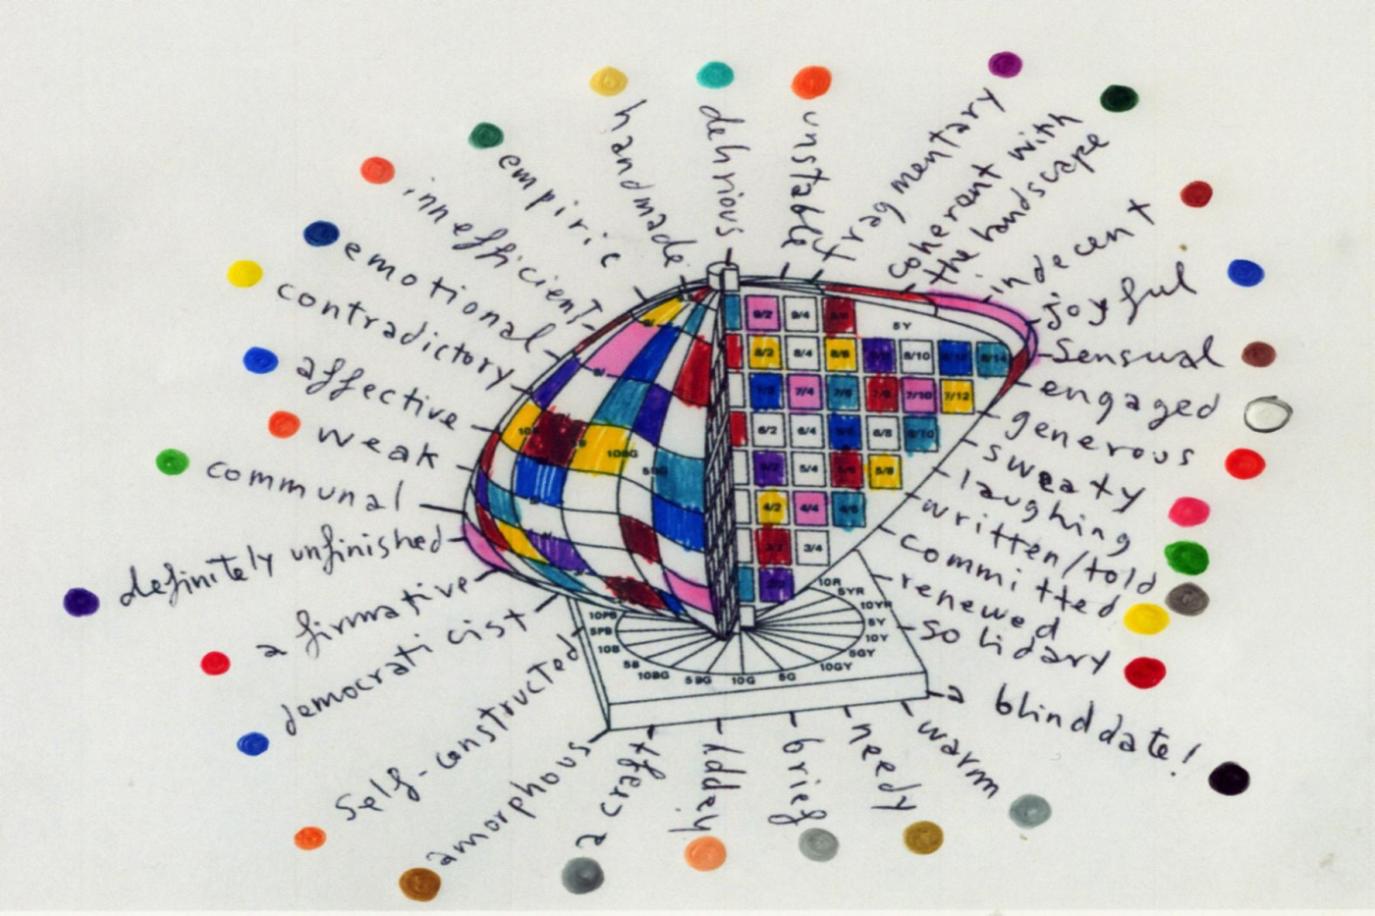 handmade
delirious
unstable
fragmentary
coherant with
the landscape
indecent
joyful
Sensual
engaged
generous
sweaty
laughing
written/told
committed
renewed
solidary
a blind date!
warm
needy
brief
happy
a craft
amorphous
self-constructed
democraticist
affirmative
definitely unfinished
communal
weak
affective
contradictory
emotional
inefficient
empiric
9/2 9/4
5Y
8/2 8/4 8/6 8/10 8/12 8/14
7/4 7/6 7/8 7/10 7/12
6/2 6/4 6/6 6/8 6/10
5/2 5/4 5/6 5/8
4/2 4/4 4/6
3/2 3/4
10BG
5BG
10R
5YR
10YR
5Y
10Y
5GY
10GY
5G
10G
5BG
10BG
5B
10B
5PB
10PB